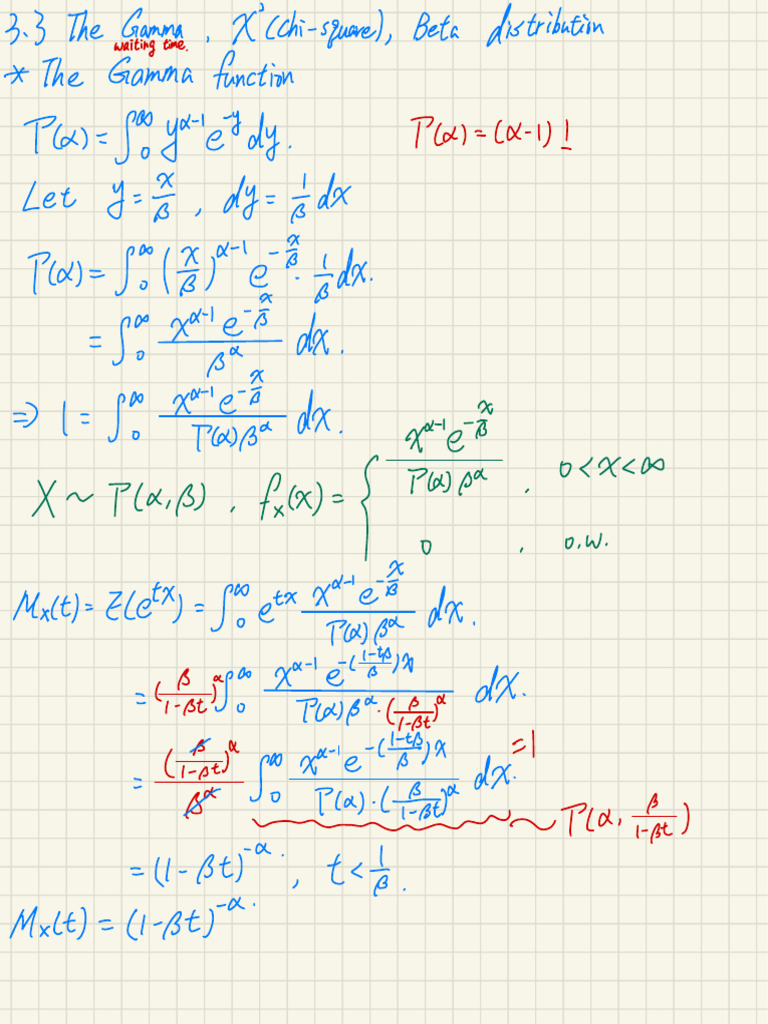 3.3 The Gamma, X²(chi-square), Beta distribution
waiting time.
* The Gamma function
Γ(α) = ∫₀^∞ y^(α-1) e^(-y) dy. Γ(α) = (α-1)!
Let y = x/β, dy = 1/β dx
Γ(α) = ∫₀^∞ (x/β)^(α-1) e^(-x/β) · 1/β dx.
= ∫₀^∞ x^(α-1) e^(-x/β) / β^α dx.
⇒ 1 = ∫₀^∞ x^(α-1) e^(-x/β) / (Γ(α) β^α) dx.
X ~ Γ(α, β), f_X(x) = { x^(α-1) e^(-x/β) / (Γ(α) β^α), 0 < x < ∞
0, o.w.
M_X(t) = E(e^(tX)) = ∫₀^∞ e^(tx) x^(α-1) e^(-x/β) / (Γ(α) β^α) dx.
= (β/(1-βt))^α ∫₀^∞ x^(α-1) e^(-((1-tβ)/β)x) / (Γ(α) β^α · (β/(1-βt))^α) dx.
= (β/(1-βt))^α / β^α ∫₀^∞ x^(α-1) e^(-((1-tβ)/β)x) / (Γ(α) · (β/(1-βt))^α) dx. = 1
~ Γ(α, β/(1-βt))
= (1-βt)^(-α), t < 1/β.
M_X(t) = (1-βt)^(-α).